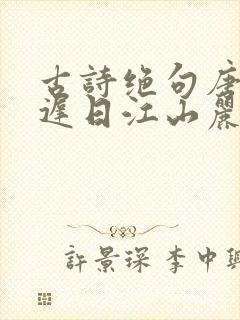 古詩绝句唐
遲日江山麗
許景琛 李中興